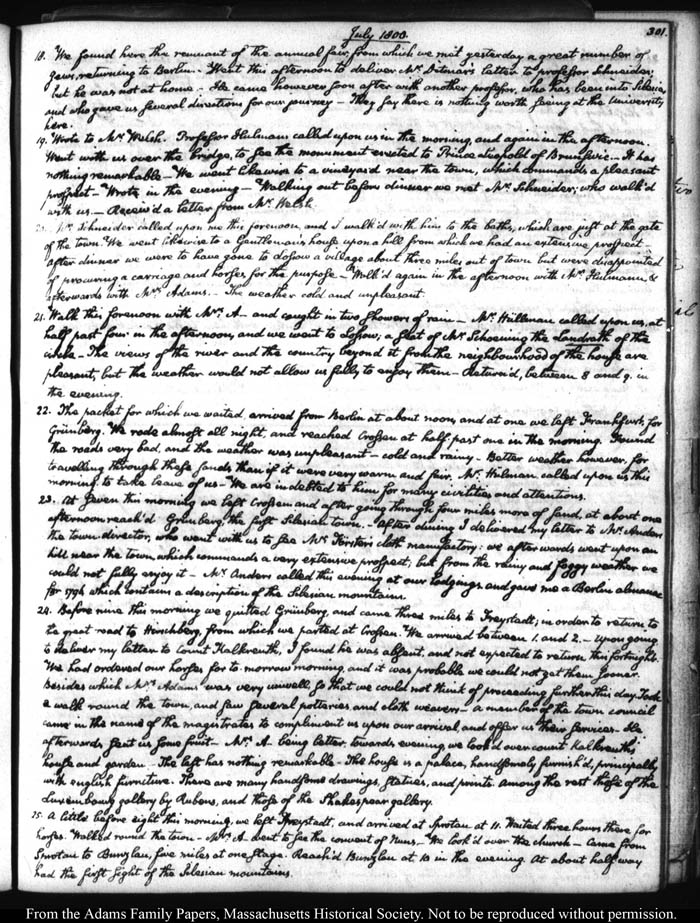 July 1800.
301.
18. We found here the remnant of the annual fair, from which we met yesterday a great number of
Jews, returning to Berlin. Went this afternoon to deliver Mr. Ditmar's letter to professor Schneider;
but he was not at home. He came however soon after with another professor, who has been into Silesia,
and who gave us several directions for our journey — They say there is nothing worth seeing at the University
here.
19. Wrote to Mr. Welsh. Professor Hulmann called upon us in the morning, and again in the afternoon.
Went with us over the bridge, to see the monument erected to Prince Leopold of Brunswic — It has
nothing remarkable — We went likewise to a vineyard near the town, which commands a pleasant
prospect — Wrote in the evening — Walking out before dinner we met Mr. Schneider, who walk'd
with us. — Receiv'd a letter from Mr. Welsh.
Mr. Schneider called upon me this forenoon, and I walk'd with him to the baths, which are just at the gate
of the town. We went likewise to a Gentleman's house upon a hill from which we had an extensive prospect —
after dinner we were to have gone to Lossow a village about three miles out of town but were disappointed
of procuring a carriage and horses for the purpose — Walk'd again in the afternoon with Mr. Hulmann, &
afterwards with Mrs. Adams. — The weather cold and unpleasant.
21. Walk this forenoon with Mrs. A— and caught in two showers of rain — Mr. Hüllman called upon us, at
half past four in the afternoon, and we went to Lossow, a seat of Mr. Schoening the Landrath of the
circle — The views of the river and the country beyond it from the neighbourhood of the house are
pleasant, but the weather would not allow us fully to enjoy them — Return'd, between 8 and 9. in
the evening.
22. The packet for which we waited, arrived from Berlin at about noon, and at one we left Frankfurt, for
Grünberg. We rode almost all night, and reached Crossen at half past one in the morning. Found
the roads very bad, and the weather was unpleasant — cold and rainy — Better weather however, for
travelling through these sands, than if it were very warm and fair. Mr. Hulman called upon us this
morning to take leave of us — We are indebted to him for many civilities and attentions.
23. At seven this morning we left Crossen and after going through four miles more of sand, at about one
afternoon reach'd Grünberg, the first Silesian town. — After dining I delivered my letter to Mr. Anders
the town director, who went with us to see Mr. Försters cloth manufactory: we afterwards went upon an
hill near the town, which commands a very extensive prospect, but from the rainy and foggy weather we
could not fully enjoy it — Mr. Anders called this evening at our lodgings, and gave me a Berlin almanac
for 1796 which contains a description of the Silesian mountains.
24. Before nine this morning we quitted Grünberg, and came three miles to Freystadt, in order to return to
the great road to Hirschberg, from which we parted at Crossen. We arrived between 1. and 2. — Upon going
to deliver my letter to Count Kalkreuth, I found he was absent, and not expected to return this fortnight.
We had ordered our horses for to-morrow morning, and it was probable we could not get them sooner.
Besides which Mrs. Adams was very unwell, so that we could not think of proceeding further this day. Took
a walk round the town, and saw several potteries and cloth weavers — a member of the town council
came in the name of the magistrates to compliment us upon our arrival, and offer us their services. He
afterwards sent us some fruit — Mrs. A. being better, towards evening, we look'd over count Kalkreuth's
house and garden — The last has nothing remarkable — The house is a palace, handsomely furnish'd, principally
with english furniture. There are many handsome drawings, statues, and prints. Among the rest those of the
Luxembourg gallery by Rubens, and those of the Shakespear gallery.
25. A little before eight this morning, we left Freystadt, and arrived at Sprotau at 11. Waited three hours there for
horses. Walked round the town — Mrs. A went to see the convent of Nuns — We look'd over the church — Came from
Sprotau to Bunzlau, five miles at one stage. Reach'd Bunzlau at 10 in the evening. At about half way
had the first sight of the Silesian mountains.
From the Adams Family Papers, Massachusetts Historical Society. Not to be reproduced without permission.